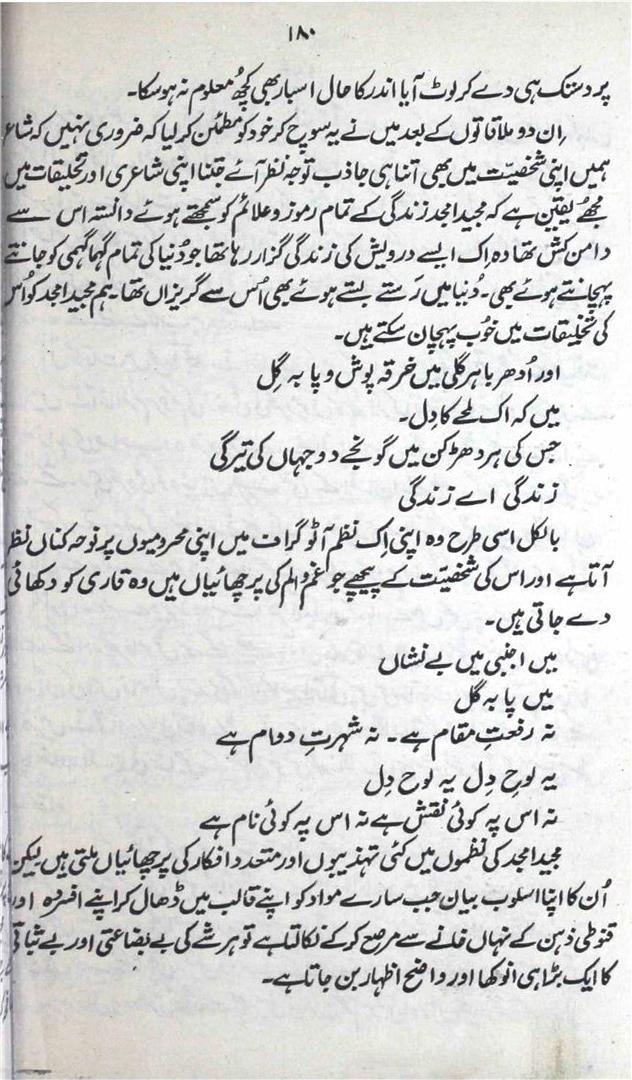 ۱۸۰
پر دستک ہی دے کر لوٹ آیا اندر کا حال اس بار بھی کچھ معلوم نہ ہو سکا۔
اِن دو ملاقاتوں کے بعد میں نے یہ سوچ کر خود کو مطمئن کر لیا کہ ضروری نہیں کہ شاعر
ہمیں اپنی شخصیّت میں بھی اتنا ہی جاذب توجہ نظر آئے جتنا اپنی شاعری اور تخلیقات میں
مجھے یقین ہے کہ مجید امجد زندگی کے تمام رموز و علائم کو سمجھتے ہوئے دانستہ اس سے
دامن کش تھا وہ اک ایسے درویش کی زندگی گزار رہا تھا جو دُنیا کی تمام گہما گہمی کو جانتے
پہچانتے ہوئے بھی۔ دُنیا میں رَستے بستے ہوئے بھی اُس سے گریزاں تھا۔ ہم مجید امجد کو اُس
کی تخلیقات میں خوب پہچان سکتے ہیں۔
اور اُدھر باہر گلی میں خرقہ پوش و پا بہ گِل
میں کہ اک لمحے کا دِل۔
جس کی ہر دھڑکن میں گونجے دو جہاں کی تیرگی
زندگی اے زندگی
بالکل اسی طرح وہ اپنی اِک نظم آٹو گراف میں اپنی محرومیوں پر نوحہ کناں نظر
آتا ہے اور اس کی شخصیّت کے پیچھے جو غم و الم کی پرچھائیاں ہیں وہ قاری کو دکھائی
دے جاتی ہیں۔
میں اجنبی میں بے نشاں
میں پا بہ گل
نہ رفعتِ مقام ہے۔ نہ شہرتِ دوام ہے
یہ لوحِ دِل یہ لوحِ دِل
نہ اس پہ کوئی نقش ہے نہ اس پہ کوئی نام ہے
مجید امجد کی نظموں میں کئی تہذیبوں اور متعدد افکار کی پرچھائیاں ملتی ہیں لیکن
اُن کا اپنا اسلوب بیان جب سارے مواد کو اپنے قالب میں ڈھال کر اپنے افسردہ اور
قنوطی ذہن کے نہاں خانے سے مرصع کر کے نکالتا ہے تو ہر شے کی بے بضاعتی اور بے ثباتی
کا ایک بڑا ہی انوکھا اور واضح اظہار بن جاتا ہے۔